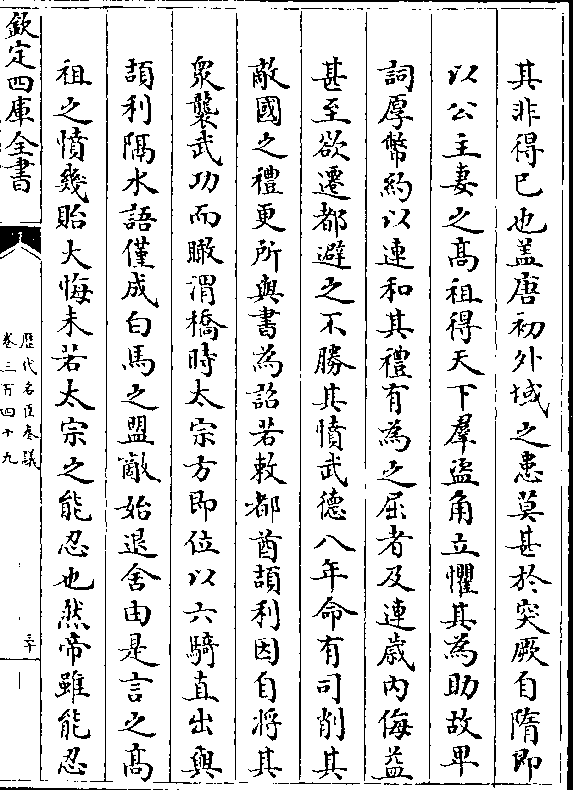 其非得已也蓋唐初外域之患莫甚於突厥自隋即
以公主妻之髙祖得天下羣盜角立懼其為助故卑
詞厚幣約以連和其禮有為之屈者及連歲内侮益
甚至欲遷都避之不勝其憤武德八年命有司削其
敵國之禮更所與書為詔若敕都酋頡利因自将其
衆襲武功而瞰渭橋時太宗方即位以六騎直出與
頡利隔水語僅成白馬之盟敵始退舍由是言之髙
祖之憤幾貽大悔未若太宗之能忍也然帝雖能忍
欽定四庫全書
歴代名臣奏議
卷三百四十九
三十